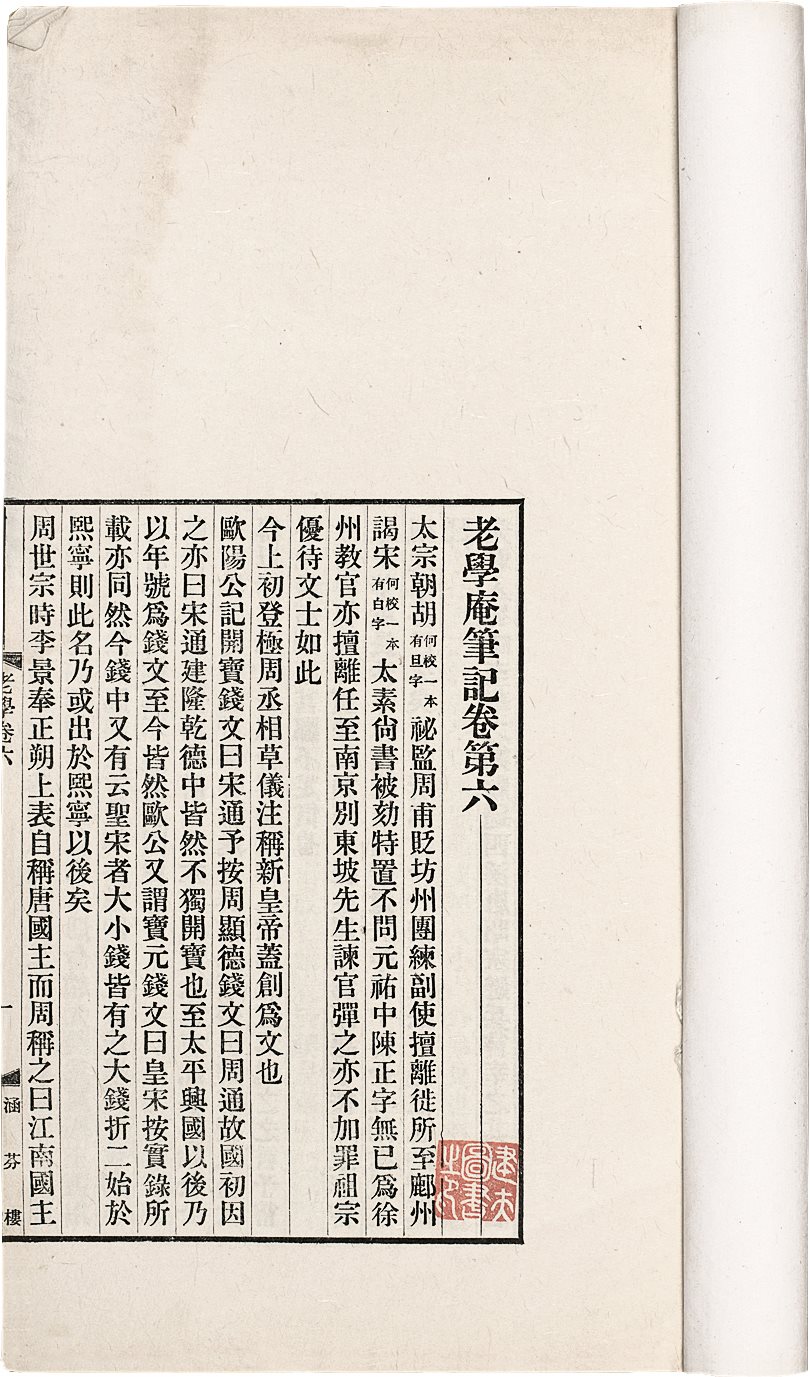 老學庵筆記卷第六
太宗朝胡何校一本有旦字祕監周甫貶坊州團練副使擅離徙所至鄜州
謁宋何校一本有白字太素尙書被劾特置不問元祐中陳正字無已爲徐
州教官亦擅離任至南京別東坡先生諫官彈之亦不加罪祖宗
優待文士如此
今上初登極周丞相草儀注稱新皇帝蓋創爲文也
歐陽公記開寶錢文曰宋通予按周顯德錢文曰周通故國初因
之亦曰宋通建隆乾德中皆然不獨開寶也至太平興國以後乃
以年號爲錢文至今皆然歐公又謂寶元錢文曰皇宋按實錄所
載亦同然今錢中又有云聖宋者大小錢皆有之大錢折二始於
熙寧則此名乃或出於熙寧以後矣
周世宗時李景奉正朔上表自稱唐國主而周稱之曰江南國主
老學卷六
一
涵芬樓